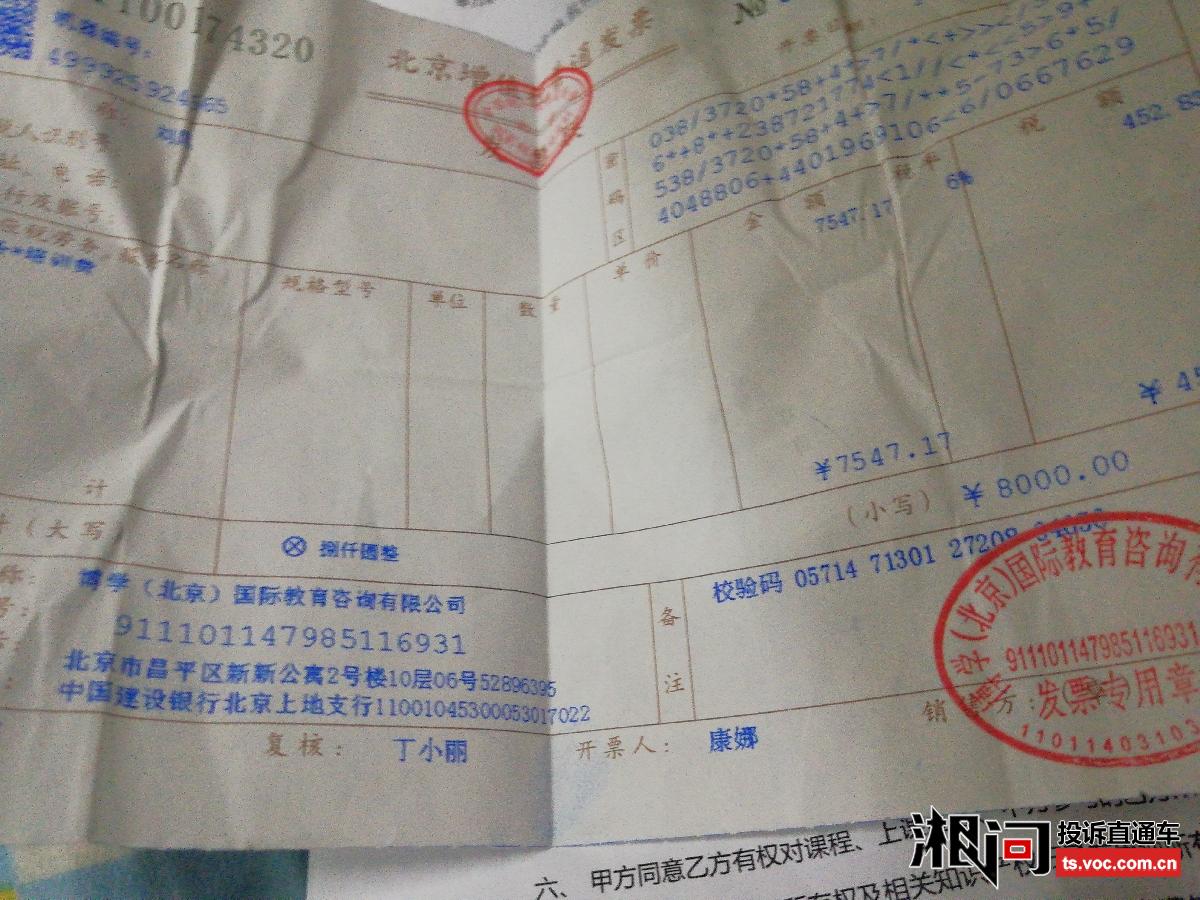 1100174320
北京增
通发票
№
机器编号:
499925924665
开票日期
038/3720*58+4+>7/*<+>>></5
6*+8*+23872177 4<1//<*<<5>9+
538/3720*58+4+>7/**5-73>6*5/
4048806+4401969106<6/0667629
密码区
称:
税人识别号
址、电话:
行及账号:
规格型号
单位
数量
单价
金额
税率
税额
*培训费
7547.17
6%
452.8
计
¥7547.17
¥45
(大写)
ⓧ 捌仟圆整
(小写)
¥8000.00
称:
博学(北京)国际教育咨询有限公司
号:
911101147985116931
北京市昌平区新新公寓2号楼10层06号52896395
中国建设银行北京上地支行11001045300053017022
备注
校验码 05714 71301 27208
复核:
丁小丽
开票人:
康娜
销
方:
博学(北京)国际教育咨询有
911101147985116931
发票专用章
11011403103
六、甲方同意乙方有权对课程、上课
有权及相关知识
湘问
投诉直通车
ts.voc.com.cn